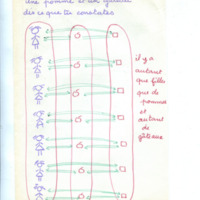 une pomme et un gâteau
dis ce que tu constates
il y a
autant
que filles
que de
pommes
et
autant
de
gâteaux